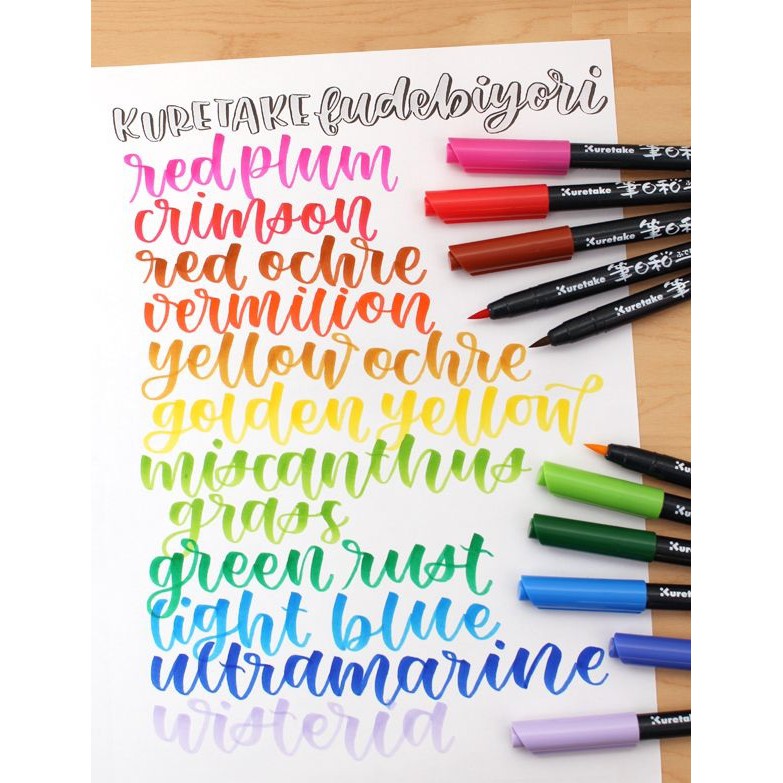 KURETAKE fudebiyori
red plum
crimson
red ochre
vermilion
yellow ochre
golden yellow
miscanthus
grass
green rust
light blue
ultramarine
wisteria
Kuretake 筆日和
Kuretake 筆日和
Kuretake 筆日和
Kuretake 筆日和
Kuretake 筆